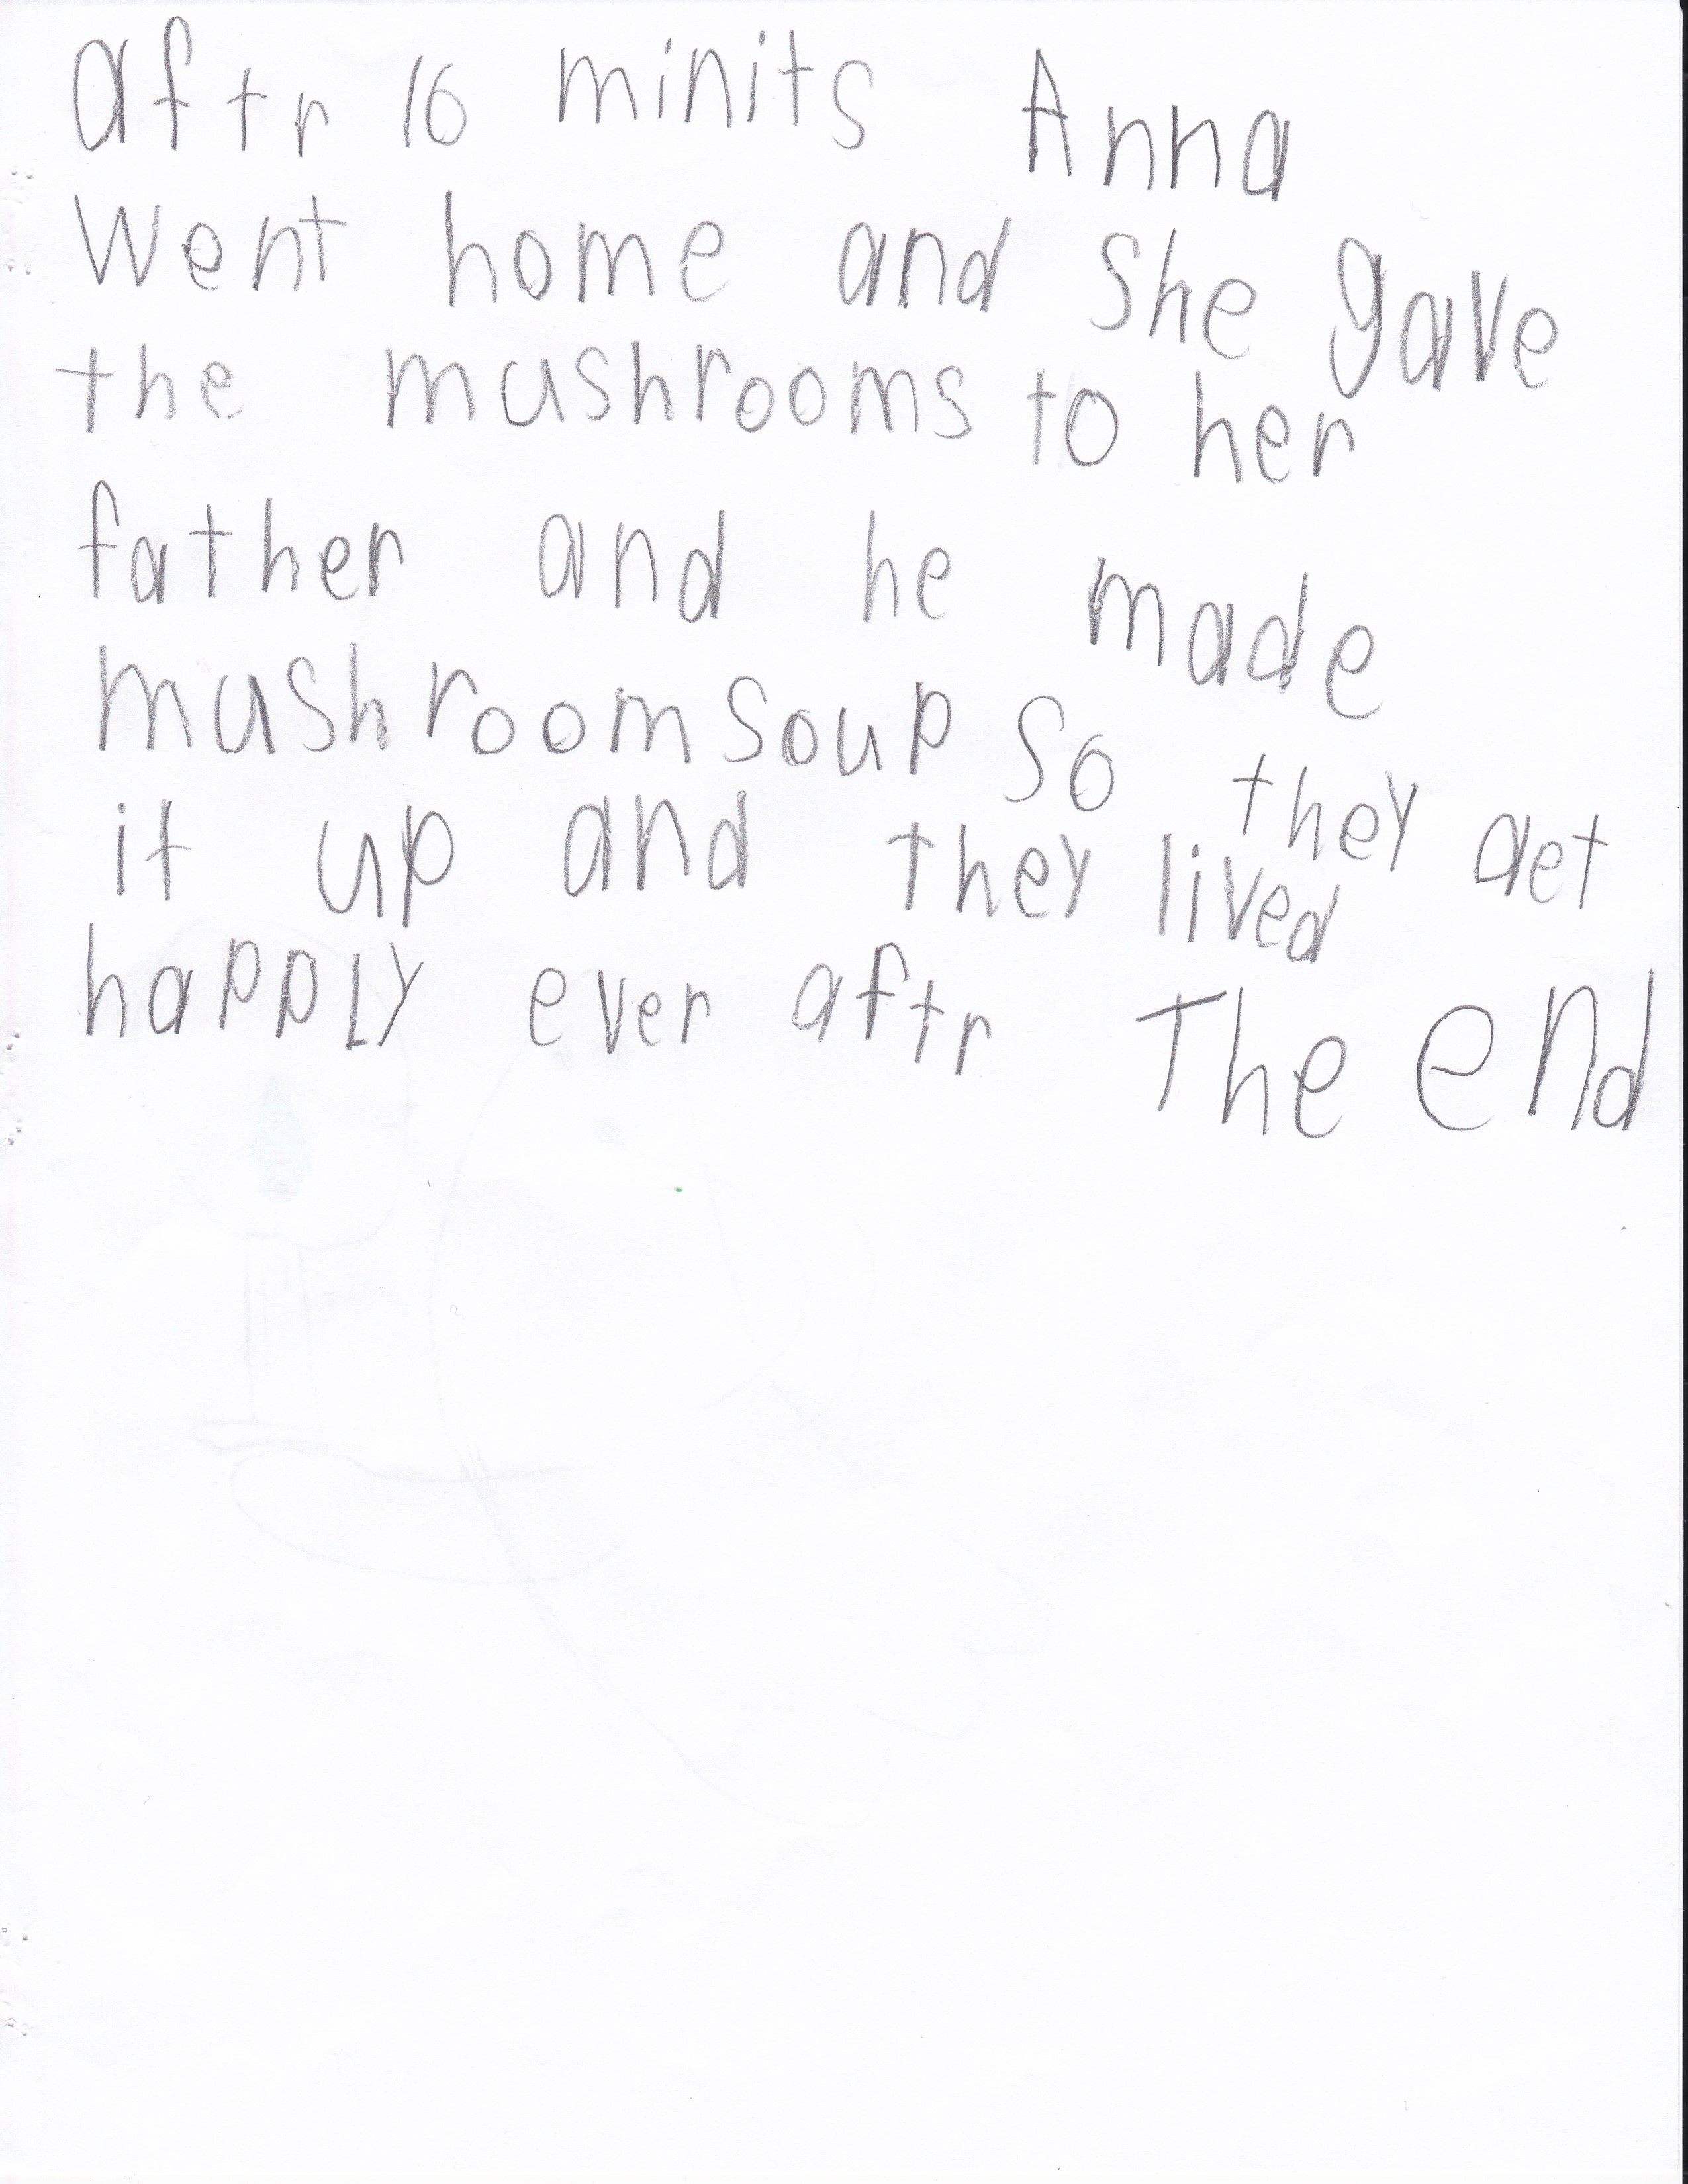 aftr 16 minits Anna
went home and she gave
the mushrooms to her
father and he made
mushroomsoup so they aet
it up and they lived
happly ever aftr The end